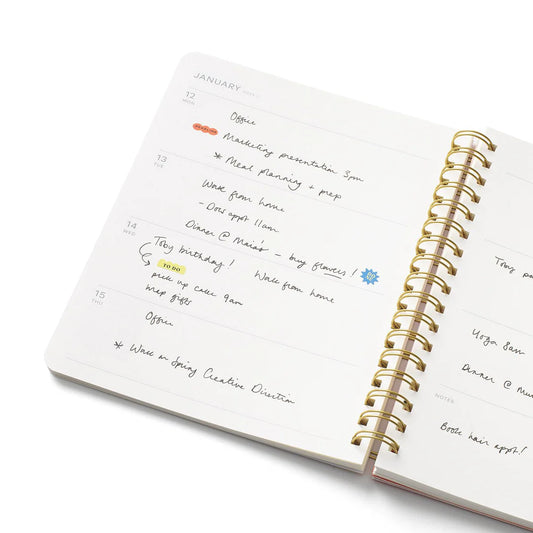 JANUARY
12
MON
Office
Marketing presentation 3pm
* Meal planning + prep
13
TUE
Work from home
- Doas appt 11am
Dinner @ Maria's - buy flowers!
14
WED
Toby birthday! Work from home
TO DO
pick up cake 9am
wrap gifts
15
THU
Office
* Work on Spring Creative Direction
Toby pa
Yoga 8am
Dinner @ Mu
NOTES
Book hair appt!